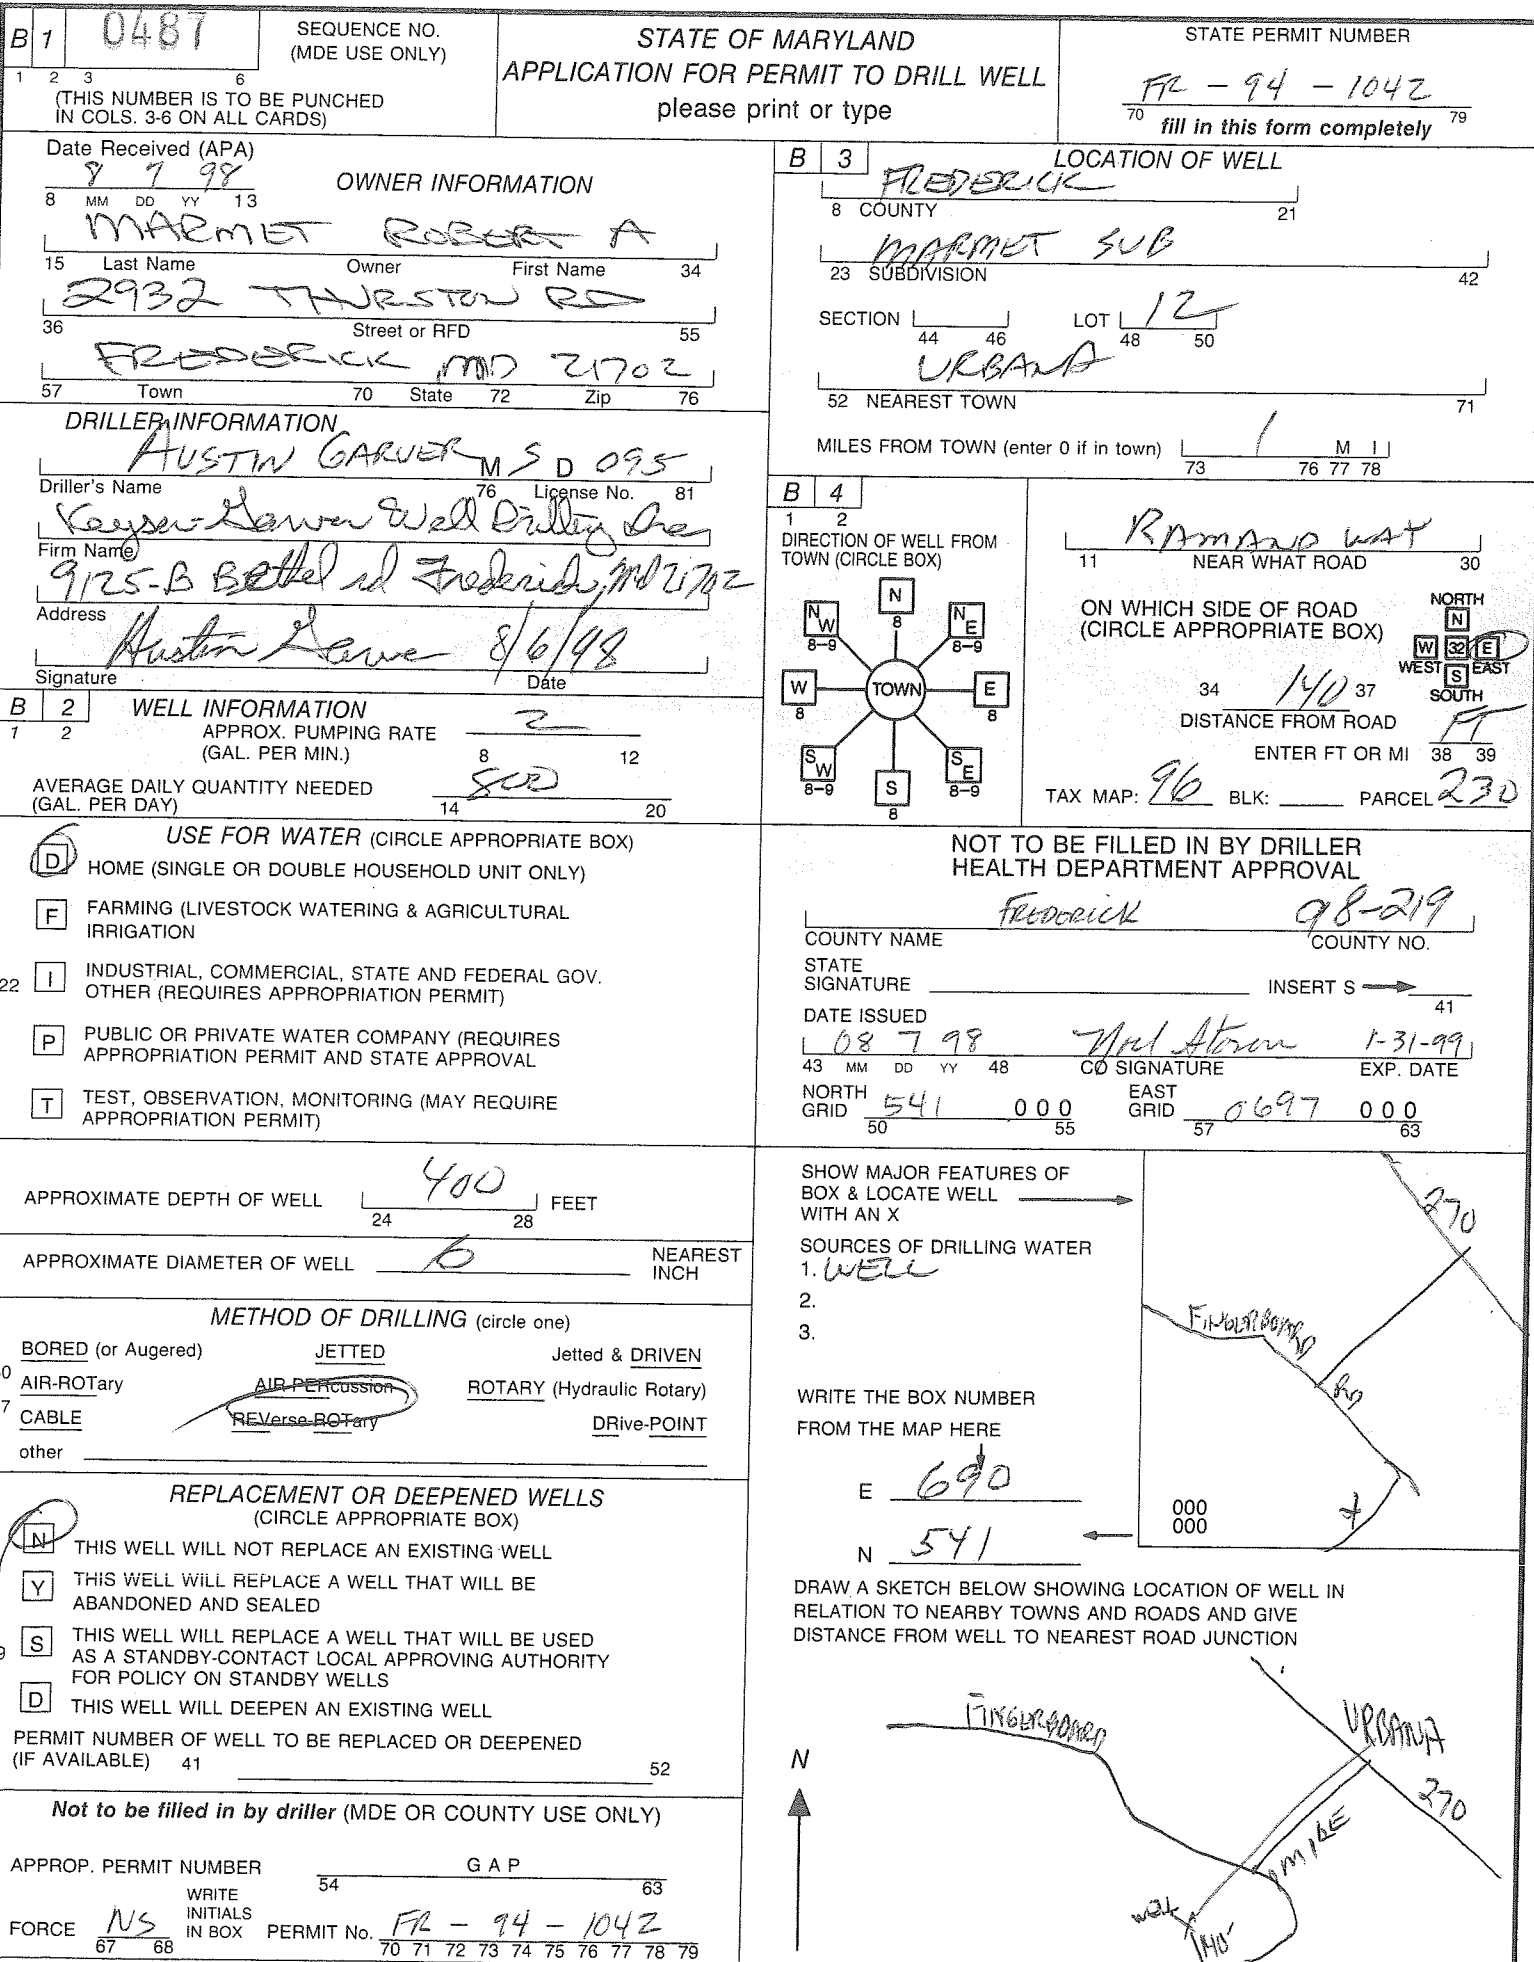 B 1 0487 SEQUENCE NO. (MDE USE ONLY)
1 2 3 6
(THIS NUMBER IS TO BE PUNCHED
IN COLS. 3-6 ON ALL CARDS)
STATE OF MARYLAND
APPLICATION FOR PERMIT TO DRILL WELL
please print or type
STATE PERMIT NUMBER
FR - 94 - 1042
70 79
fill in this form completely
Date Received (APA)
8 7 98
8 MM DD YY 13
OWNER INFORMATION
MARMET ROBERT A
15 Last Name Owner First Name 34
2932 THURSTON RD
36 Street or RFD 55
FREDERICK, MD 21702
57 Town 70 State 72 Zip 76
DRILLER INFORMATION
AUSTIN GARVER M S D 095
Driller's Name 76 License No. 81
Keyser-Garver Well Drilling Inc
Firm Name
9125-B Bethel rd Frederick, Md 21702
Address
Austin Garver 8/6/98
Signature Date
B 2 WELL INFORMATION
1 2
APPROX. PUMPING RATE 2
(GAL. PER MIN.) 8 12
AVERAGE DAILY QUANTITY NEEDED 500
(GAL. PER DAY) 14 20
USE FOR WATER (CIRCLE APPROPRIATE BOX)
D HOME (SINGLE OR DOUBLE HOUSEHOLD UNIT ONLY)
F FARMING (LIVESTOCK WATERING & AGRICULTURAL
IRRIGATION
22 I INDUSTRIAL, COMMERCIAL, STATE AND FEDERAL GOV.
OTHER (REQUIRES APPROPRIATION PERMIT)
P PUBLIC OR PRIVATE WATER COMPANY (REQUIRES
APPROPRIATION PERMIT AND STATE APPROVAL
T TEST, OBSERVATION, MONITORING (MAY REQUIRE
APPROPRIATION PERMIT)
APPROXIMATE DEPTH OF WELL 400 FEET
24 28
APPROXIMATE DIAMETER OF WELL 6 NEAREST
INCH
METHOD OF DRILLING (circle one)
BORED (or Augered) JETTED Jetted & DRIVEN
AIR-ROTary AIR-PERcussion ROTARY (Hydraulic Rotary)
CABLE REVerse-ROTary DRive-POINT
other
REPLACEMENT OR DEEPENED WELLS
(CIRCLE APPROPRIATE BOX)
N THIS WELL WILL NOT REPLACE AN EXISTING WELL
Y THIS WELL WILL REPLACE A WELL THAT WILL BE
ABANDONED AND SEALED
S THIS WELL WILL REPLACE A WELL THAT WILL BE USED
AS A STANDBY-CONTACT LOCAL APPROVING AUTHORITY
FOR POLICY ON STANDBY WELLS
D THIS WELL WILL DEEPEN AN EXISTING WELL
PERMIT NUMBER OF WELL TO BE REPLACED OR DEEPENED
(IF AVAILABLE) 41 52
Not to be filled in by driller (MDE OR COUNTY USE ONLY)
APPROP. PERMIT NUMBER G A P
54 63
FORCE NS WRITE INITIALS IN BOX PERMIT No. FR - 94 - 1042
67 68 70 71 72 73 74 75 76 77 78 79
B 3 LOCATION OF WELL
FREDERICK
8 COUNTY 21
MARMET SUB
23 SUBDIVISION 42
SECTION LOT 12
44 46 48 50
URBANA
52 NEAREST TOWN 71
MILES FROM TOWN (enter 0 if in town) 1 M I
73 76 77 78
B 4
1 2
DIRECTION OF WELL FROM
TOWN (CIRCLE BOX)
N
8
NW NE
8-9 8-9
W TOWN E
8 8
SW SE
8-9 8-9
S
8
RAMAND WAY
11 NEAR WHAT ROAD 30
ON WHICH SIDE OF ROAD
(CIRCLE APPROPRIATE BOX)
NORTH
N
W 32 E
WEST EAST
S
SOUTH
34 140 37
DISTANCE FROM ROAD FT
ENTER FT OR MI 38 39
TAX MAP: 96 BLK: PARCEL 230
NOT TO BE FILLED IN BY DRILLER
HEALTH DEPARTMENT APPROVAL
FREDERICK 98-219
COUNTY NAME COUNTY NO.
STATE
SIGNATURE INSERT S
41
DATE ISSUED
08 7 98 1-31-99
43 MM DD YY 48 CO SIGNATURE EXP. DATE
NORTH
GRID 541 000 EAST
GRID 0697 000
50 55 57 63
SHOW MAJOR FEATURES OF
BOX & LOCATE WELL
WITH AN X
SOURCES OF DRILLING WATER
1. WELL
2.
3.
WRITE THE BOX NUMBER
FROM THE MAP HERE
E 690
N 541
270
FINGERBOARD
RD
X
000
000
DRAW A SKETCH BELOW SHOWING LOCATION OF WELL IN
RELATION TO NEARBY TOWNS AND ROADS AND GIVE
DISTANCE FROM WELL TO NEAREST ROAD JUNCTION
N
FINGERBOARD
URBANA
270
1 MILE
well
140'